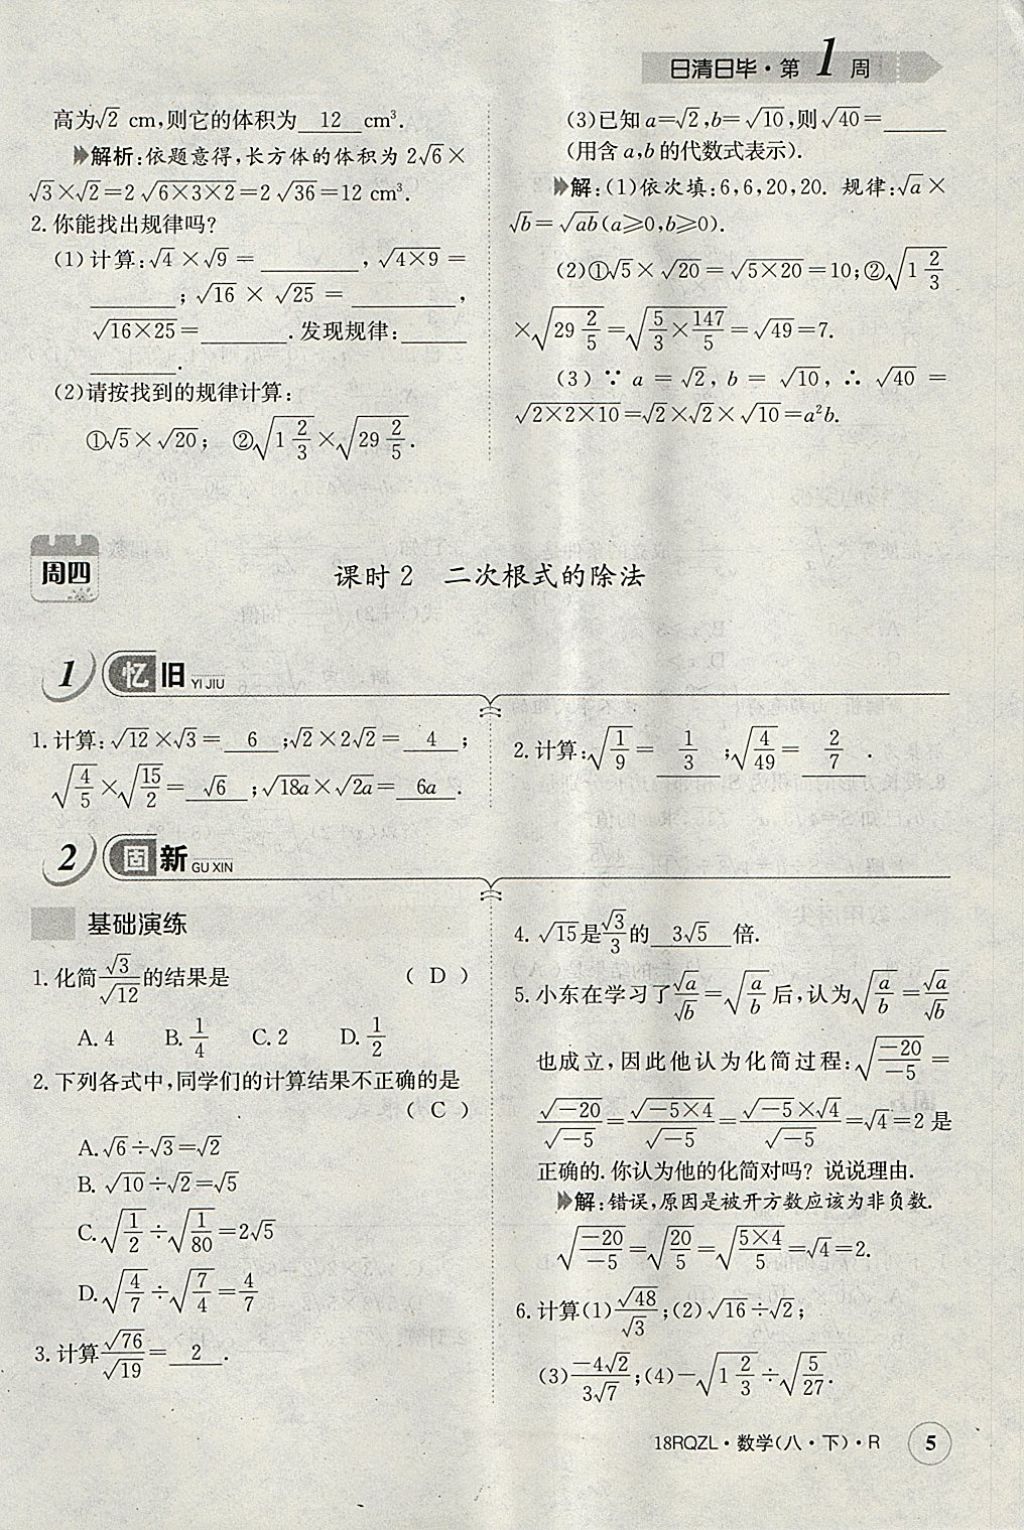 日清日毕·第1周
高为√2 cm,则它的体积为 12 cm³.
解析:依题意得,长方体的体积为 2√6×
√3×√2=2√(6×3×2)=2√36=12 cm³.
2. 你能找出规律吗?
(1)计算:√4×√9=________,√(4×9)=
________;√16×√25=________,
√(16×25)=________.发现规律:______
________.
(2)请按找到的规律计算:
①√5×√20; ②√(1 2/3)×√(29 2/5).
(3)已知a=√2,b=√10,则√40=______
(用含a,b的代数式表示).
解:(1)依次填:6,6,20,20. 规律:√a×
√b=√ab(a≥0,b≥0).
(2)①√5×√20=√(5×20)=10;②√(1 2/3)
×√(29 2/5)=√(5/3×147/5)=√49=7.
(3)∵a=√2,b=√10,∴√40=
√(2×2×10)=√2×√2×√10=a²b.
周四
课时2 二次根式的除法
1 忆旧 YI JIU
1. 计算:√12×√3= 6 ;√2×2√2= 4 ;
√(4/5)×√(15/2)= √6 ;√18a×√2a= 6a .
2. 计算:√(1/9)= 1/3 ;√(4/49)= 2/7 .
2 固新 GU XIN
基础演练
1. 化简√3/√12的结果是 ( D )
A. 4 B. 1/4 C. 2 D. 1/2
2. 下列各式中,同学们的计算结果不正确的是
( C )
A. √6÷√3=√2
B. √10÷√2=√5
C. √(1/2)÷√(1/80)=2√5
D. √(4/7)÷√(7/4)=4/7
3. 计算√76/√19= 2 .
4. √15是√3/3的 3√5 倍.
5. 小东在学习了√a/√b=√(a/b)后,认为√(a/b)=√a/√b
也成立,因此他认为化简过程:√(-20/-5)=
√-20/√-5=√(-5×4)/√-5=√-5×√4/√-5=√4=2是
正确的. 你认为他的化简对吗? 说说理由.
解:错误,原因是被开方数应该为非负数.
√(-20/-5)=√(20/5)=√(5×4/5)=√4=2.
6. 计算(1)√48/√3;(2)√16÷√2;
(3)-4√2/3√7;(4)-√(1 2/3)÷√(5/27).
18RQZL·数学(八·下)·R 5